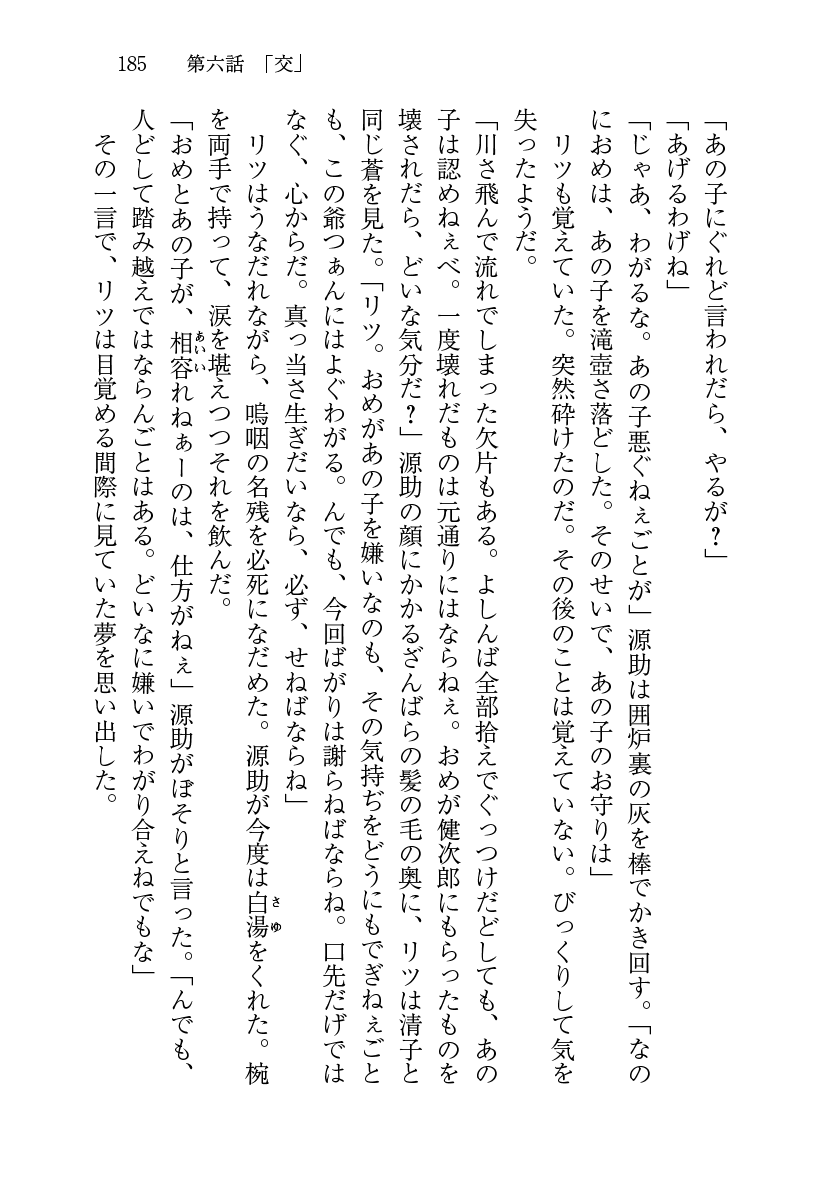 185　第六話　「交」
「あの子にぐれど言われだら、やるが？」
「あげるわげね」
「じゃあ、わがるな。あの子悪ぐねぇごとが」源助は囲炉裏の灰を棒でかき回す。「なの
におめは、あの子を滝壺さ落どした。そのせいで、あの子のお守りは」
　リツも覚えていた。突然砕けたのだ。その後のことは覚えていない。びっくりして気を
失ったようだ。
「川さ飛んで流れでしまった欠片もある。よしんば全部拾えでぐっつけだどしても、あの
子は認めねぇべ。一度壊れだものは元通りにはならねぇ。おめが健次郎にもらったものを
壊されだら、どいな気分だ？」源助の顔にかかるざんばらの髪の毛の奥に、リツは清子と
同じ蒼を見た。「リツ。おめがあの子を嫌いなのも、その気持ぢをどうにもでぎねぇごと
も、この爺つぁんにはよぐわがる。んでも、今回ばがりは謝らねばならね。口先だげでは
なぐ、心からだ。真っ当さ生ぎだいなら、必ず、せねばならね」
　リツはうなだれながら、嗚咽の名残を必死になだめた。源助が今度は白湯をくれた。椀
さゆ
を両手で持って、涙を堪えつつそれを飲んだ。
「おめとあの子が、相容れねぁーのは、仕方がねぇ」源助がぼそりと言った。「んでも、
あいい
人どして踏み越えではならんごとはある。どいなに嫌いでわがり合えねでもな」
　その一言で、リツは目覚める間際に見ていた夢を思い出した。